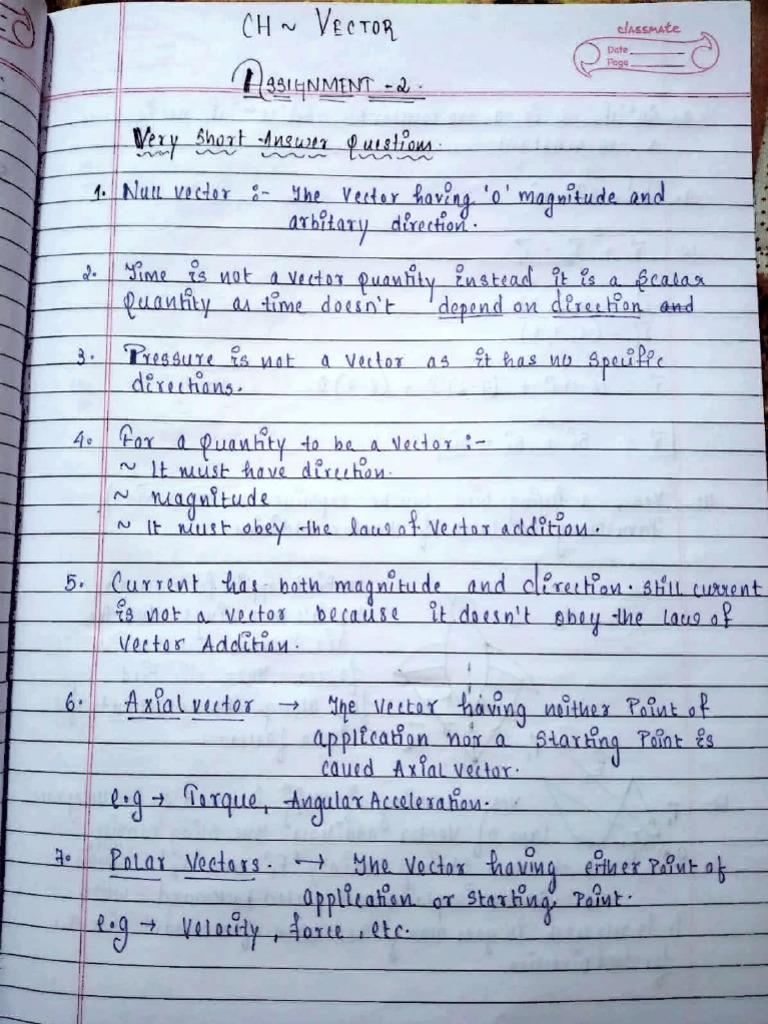 CH ~ VECTOR
classmate
Date
Page
ASSIGNMENT - 2.
Very Short Answer Questions.
1. Null vector :- The vector having '0' magnitude and
arbitary direction.
2. Time is not a vector quantity instead it is a scalar
quantity as time doesn't depend on direction and
3. Pressure is not a vector as it has no specific
directions.
4. For a quantity to be a vector :-
~ It must have direction.
~ magnitude
~ It must obey the laws of vector addition.
5. Current has both magnitude and direction. Still current
is not a vector because it doesn't obey the laws of
Vector Addition.
6. Axial vector → The vector having neither Point of
application nor a starting Point is
called Axial vector.
e.g → Torque, Angular Acceleration.
7. Polar Vectors. → The vector having either Point of
application or starting Point.
e.g → Velocity, force, etc.